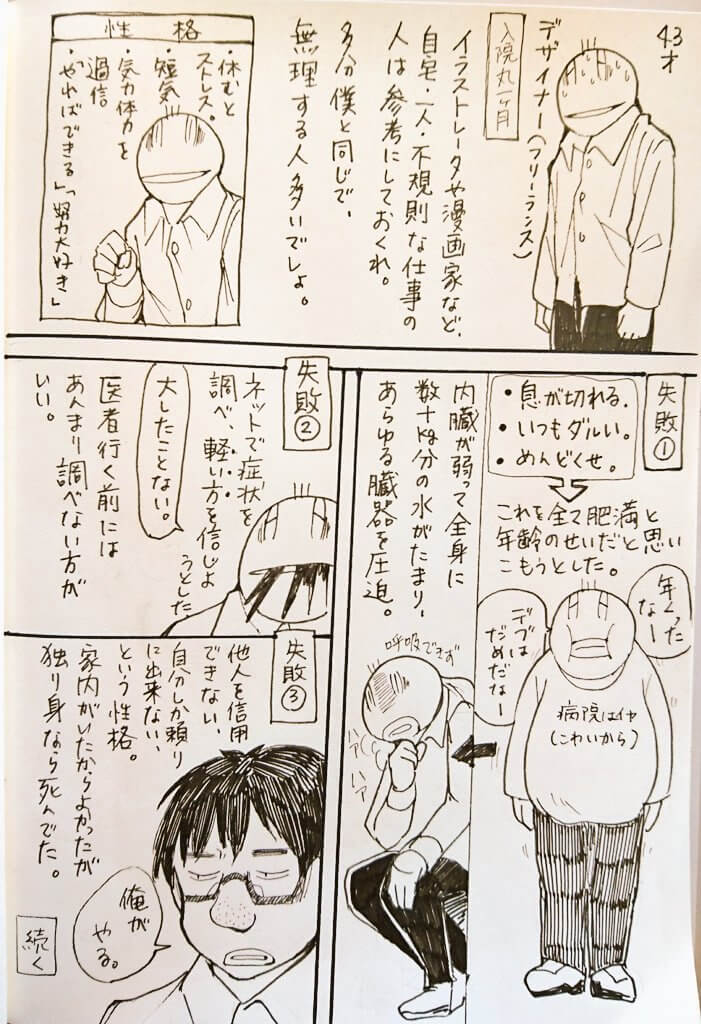 43才
デザイナー(フリーランス)
入院丸一ヶ月
イラストレータや漫画家など、
自宅・一人・不規則な仕事の
人は参考にしておくれ。
多分僕と同じで、
無理する人多いでしょ。
性格
・休むと
ストレス。
・短気
・気力体力を
過信
・「やればできる」「努力大好き」
失敗①
・息が切れる。
・いつもダルい。
・めんどくせ。
これを全て肥満と
年齢のせいだと思い
こもうとした。
年くった
なー
デブは
だめだなー
病院はイヤ
(こわいから)
内臓が弱って全身に
数十kg分の水がたまり、
あらゆる臓器を圧迫。
呼吸できず
ハァ
ハァ
失敗②
ネットで症状を
調べ、軽い方を信じよ
うとした
大したことない。
医者行く前には
あんまり調べない方が
いい。
失敗③
他人を信用
できない、
自分しか頼り
に出来ない、
という性格。
家内がいたからよかったが
独り身なら死んでた。
俺が
やる。
続く